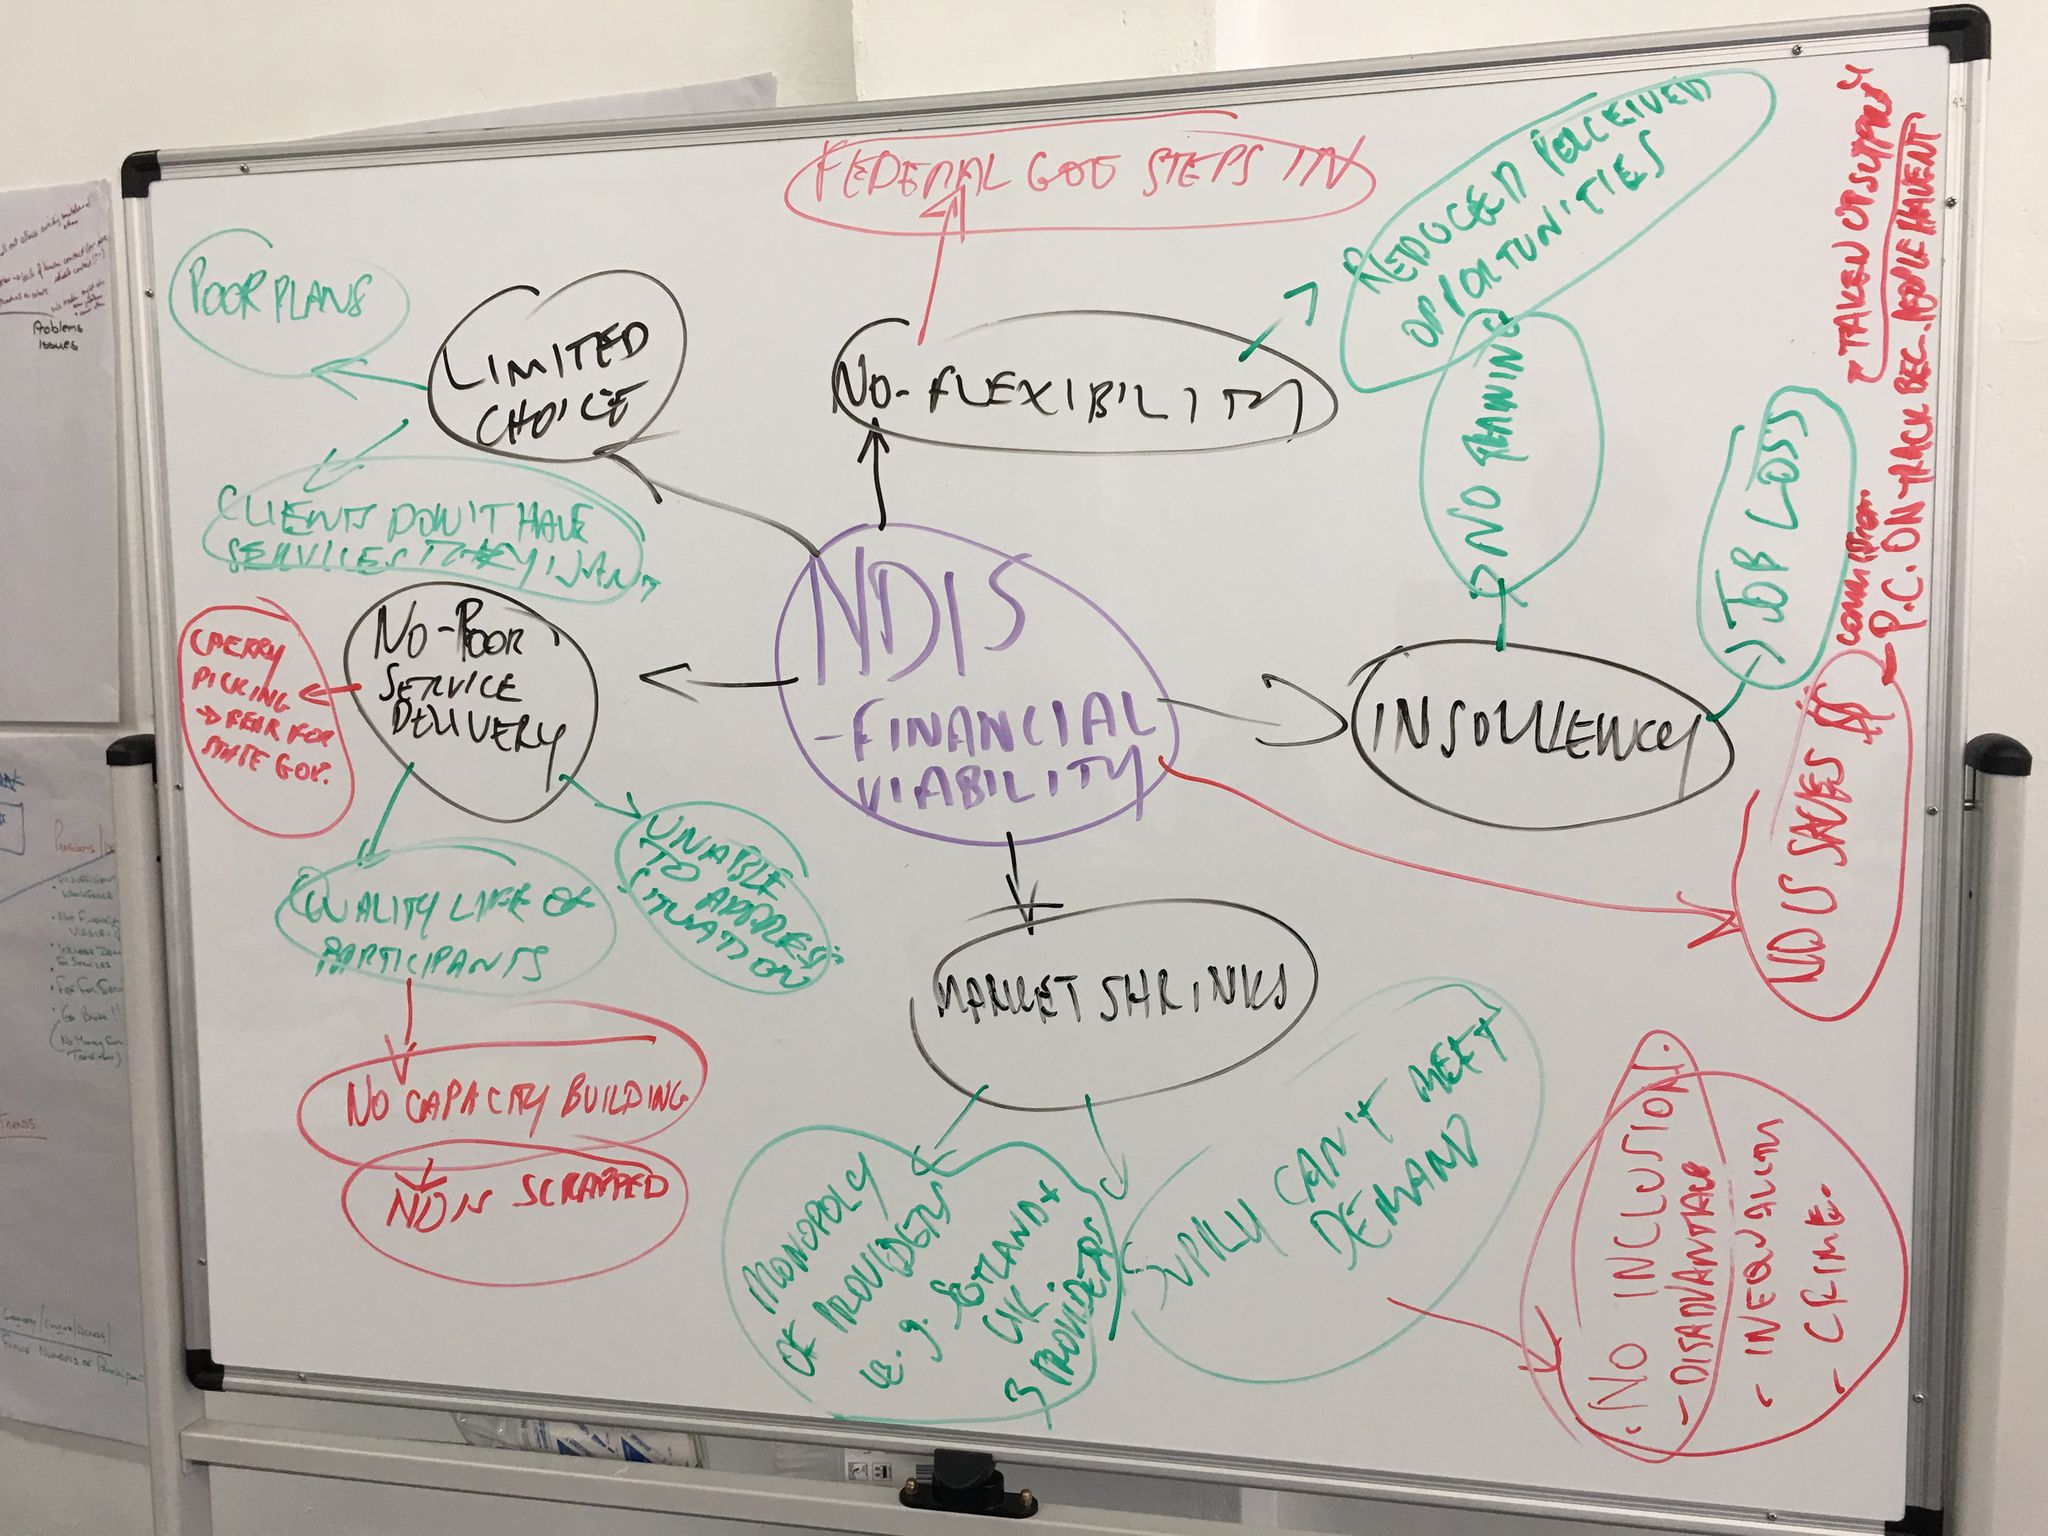 FEDERAL GOV STEPS IN
REDUCED PERCEIVED
OPPORTUNITIES
POOR PLANS
LIMITED
CHOICE
NO-FLEXIBILITY
NO TRAINING
JOB LOSS
TAKEN UP SUPPORTS
P.C. ON TRACK BEC. PEOPLE HAVENT
COMMISSION
CLIENTS DON'T HAVE
SERVICES THEY WANT
NDIS
-FINANCIAL
VIABILITY
CHERRY
PICKING
→ FEAR FOR
STATE GOV.
NO-POOR
SERVICE
DELIVERY
INSOLVENCY
NDIS SAVES $$
UNABLE
TO ADDRESS
SITUATION
QUALITY LIFE OF
PARTICIPANTS
MARKET SHRINKS
NO CAPACITY BUILDING
NDIS SCRAPPED
MONOPOLY
OF PROVIDERS
e.g.
UK
3 PROVIDERS
SUPPLY CAN'T MEET
DEMAND
. NO INCLUSION.
- DISADVANTAGE
- INEQUALITY
- CRIME.
Problems
Issues
TRENDS